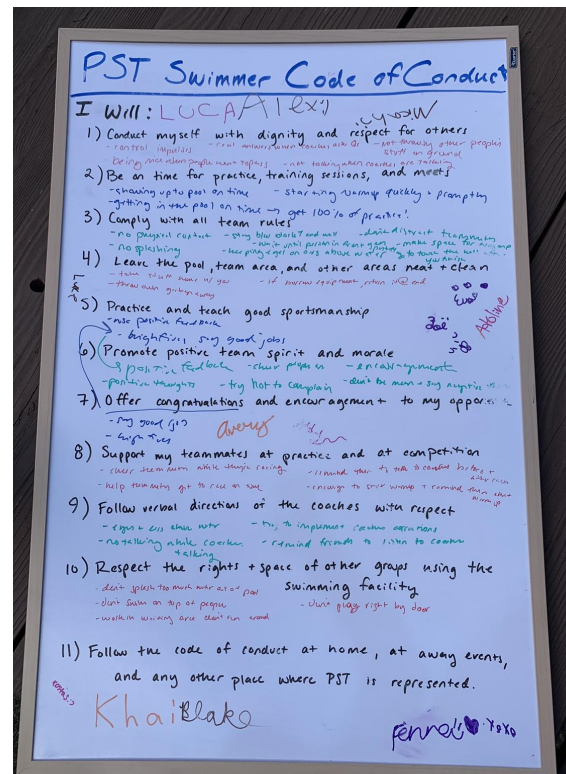 PST Swimmer Code of Conduct
I Will: LUCA Alexis
1) Conduct myself with dignity and respect for others
- control impulses - not throwing other people's
stuff on ground
being nice when people want to pass - not talking when coaches are talking
2) Be on time for practice, training sessions, and meets
- showing up to pool on time - starting warmup quickly + promptly
- getting in the pool on time → get 100% of practice!
3) Comply with all team rules
- no physical contact - don't distract teammates
- no splashing - wait until person in front - make space for
4) Leave the pool, team area, and other areas neat + clean
- take stuff home w/ you - if borrow equipment return it @ end
- throw own garbage away
Evae
5) Practice and teach good sportsmanship
- use positive feedback
Zoë
- high fives, say good jobs
6) Promote positive team spirit and morale
positive feedback - encouragement
- positive thoughts - try not to complain - don't be mean + say negative
7) Offer congratulations and encouragement to my
- say good job
- high fives
avery
8) Support my teammates at practice and at competition
- cheer them on while they're racing
- help teammates get to race on time - encourage to start warmup + remind them about
warmup
9) Follow verbal directions of the coaches with respect
- try to implement coaches corrections
- no talking while coaches - remind friends to listen to coaches
talking
10) Respect the rights + space of other groups using the
swimming facility
- don't splash too much water out of pool
- don't swim on top of people - don't play right by door
- walk in walking area don't run around
11) Follow the code of conduct at home, at away events,
and any other place where PST is represented.
Khai Blake
xoxo